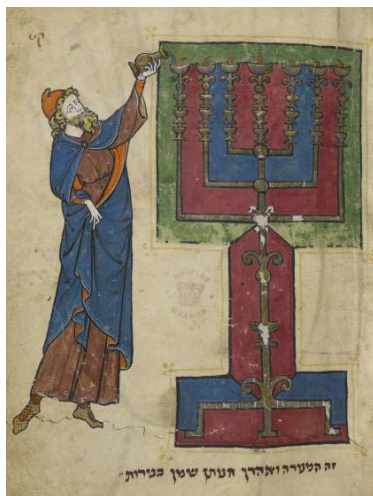 זה המנורה ואהרן הנותן שמן בנירות